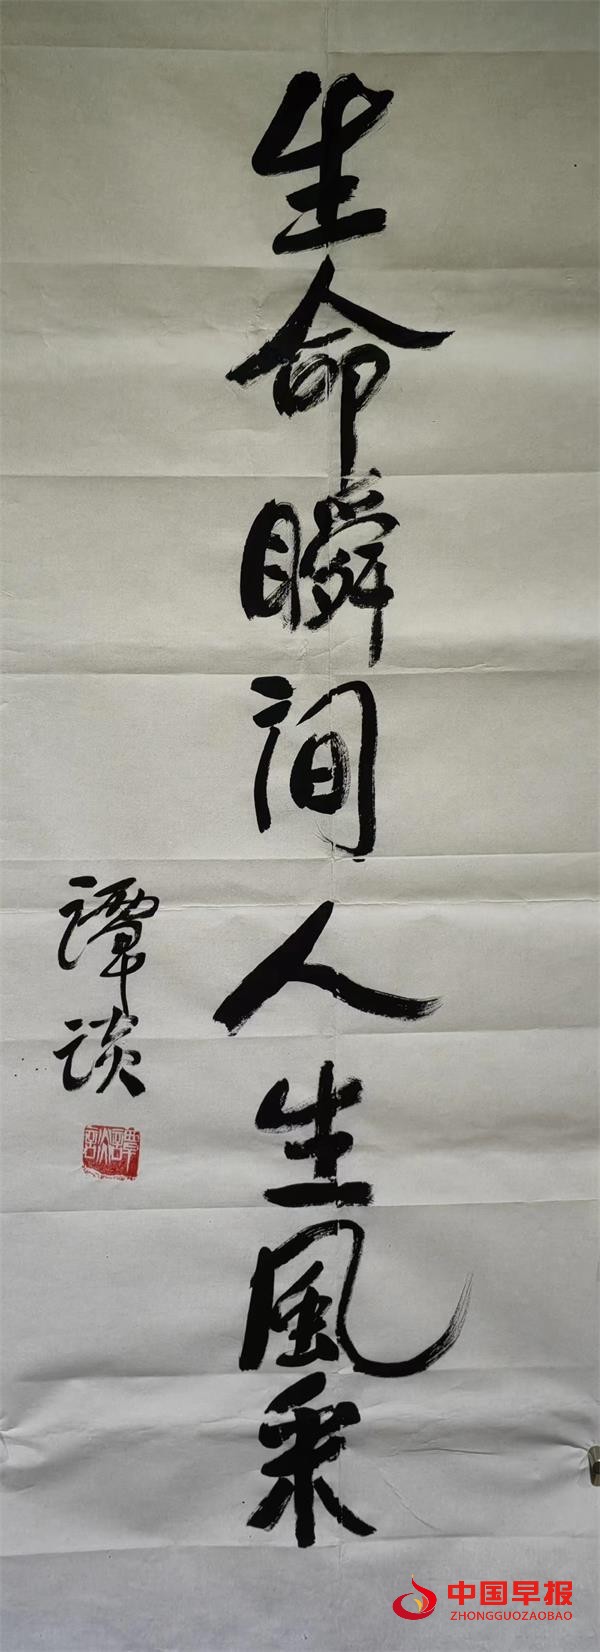 生命瞬间人生風采
譚谈
譚談
中国早报
ZHONGGUOZAOBAO